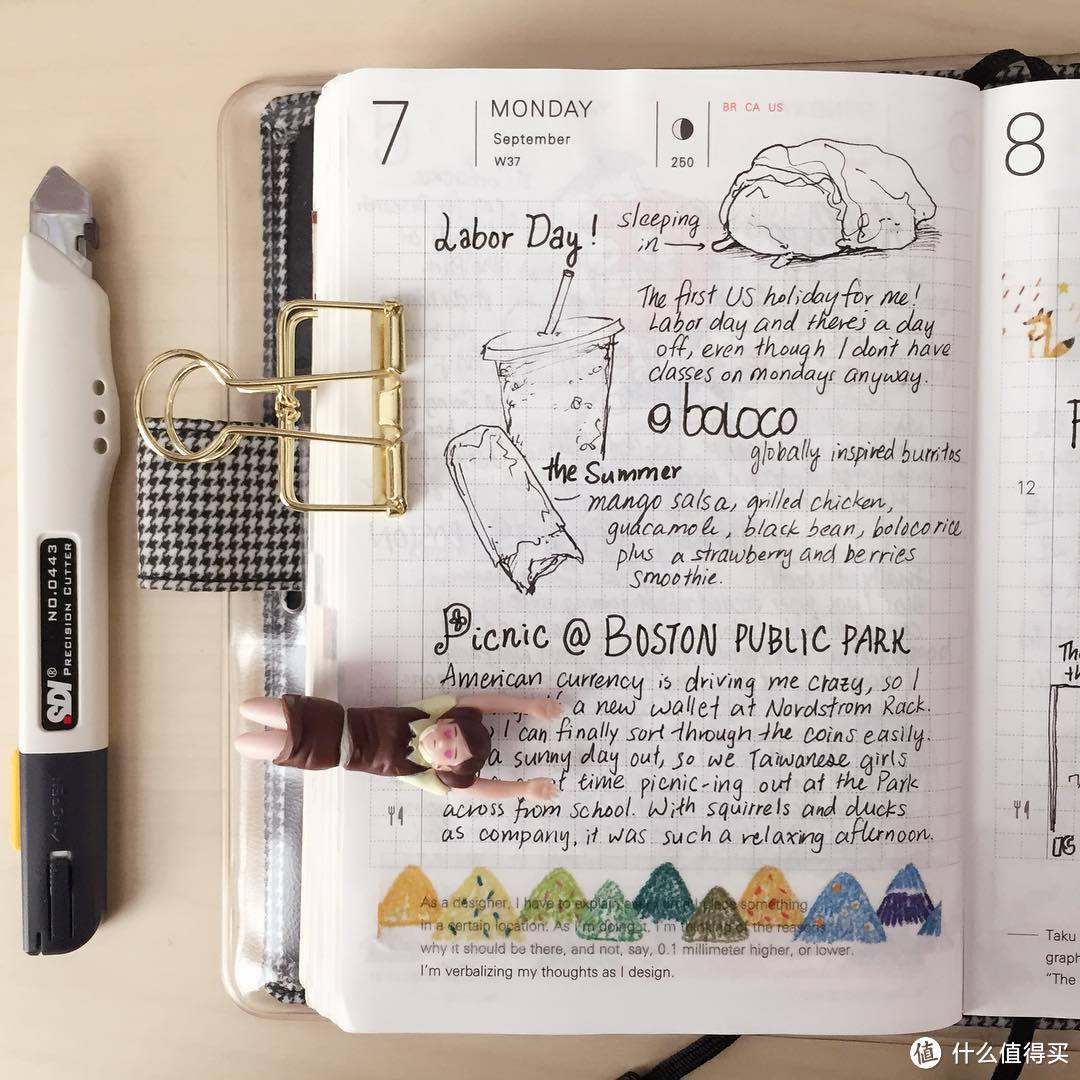 7
MONDAY
September
W37
250
BR CA US
8
Labor Day!
sleeping
in
The first US holiday for me!
Labor day and there's a day
off, even though I don't have
classes on mondays anyway.
@ boloco
globally inspired burritos
the Summer
mango salsa, grilled chicken,
guacamole, black bean, boloco rice
plus a strawberry and berries
smoothie.
Picnic @ BOSTON PUBLIC PARK
American currency is driving me crazy, so I
a new wallet at Nordstrom Rack.
I can finally sort through the coins easily.
a sunny day out, so we Taiwanese girls
time picnic-ing out at the Park
across from school. With squirrels and ducks
as company, it was such a relaxing afternoon.
As a designer, I have to explain every time I place something
in a certain location. As I'm doing it, I'm thinking of the reasons
why it should be there, and not, say, 0.1 millimeter higher, or lower.
I'm verbalizing my thoughts as I design.
12
Taku
graph
"The
SDI®
NO.0443
PRECISION CUTTER
值 什么值得买